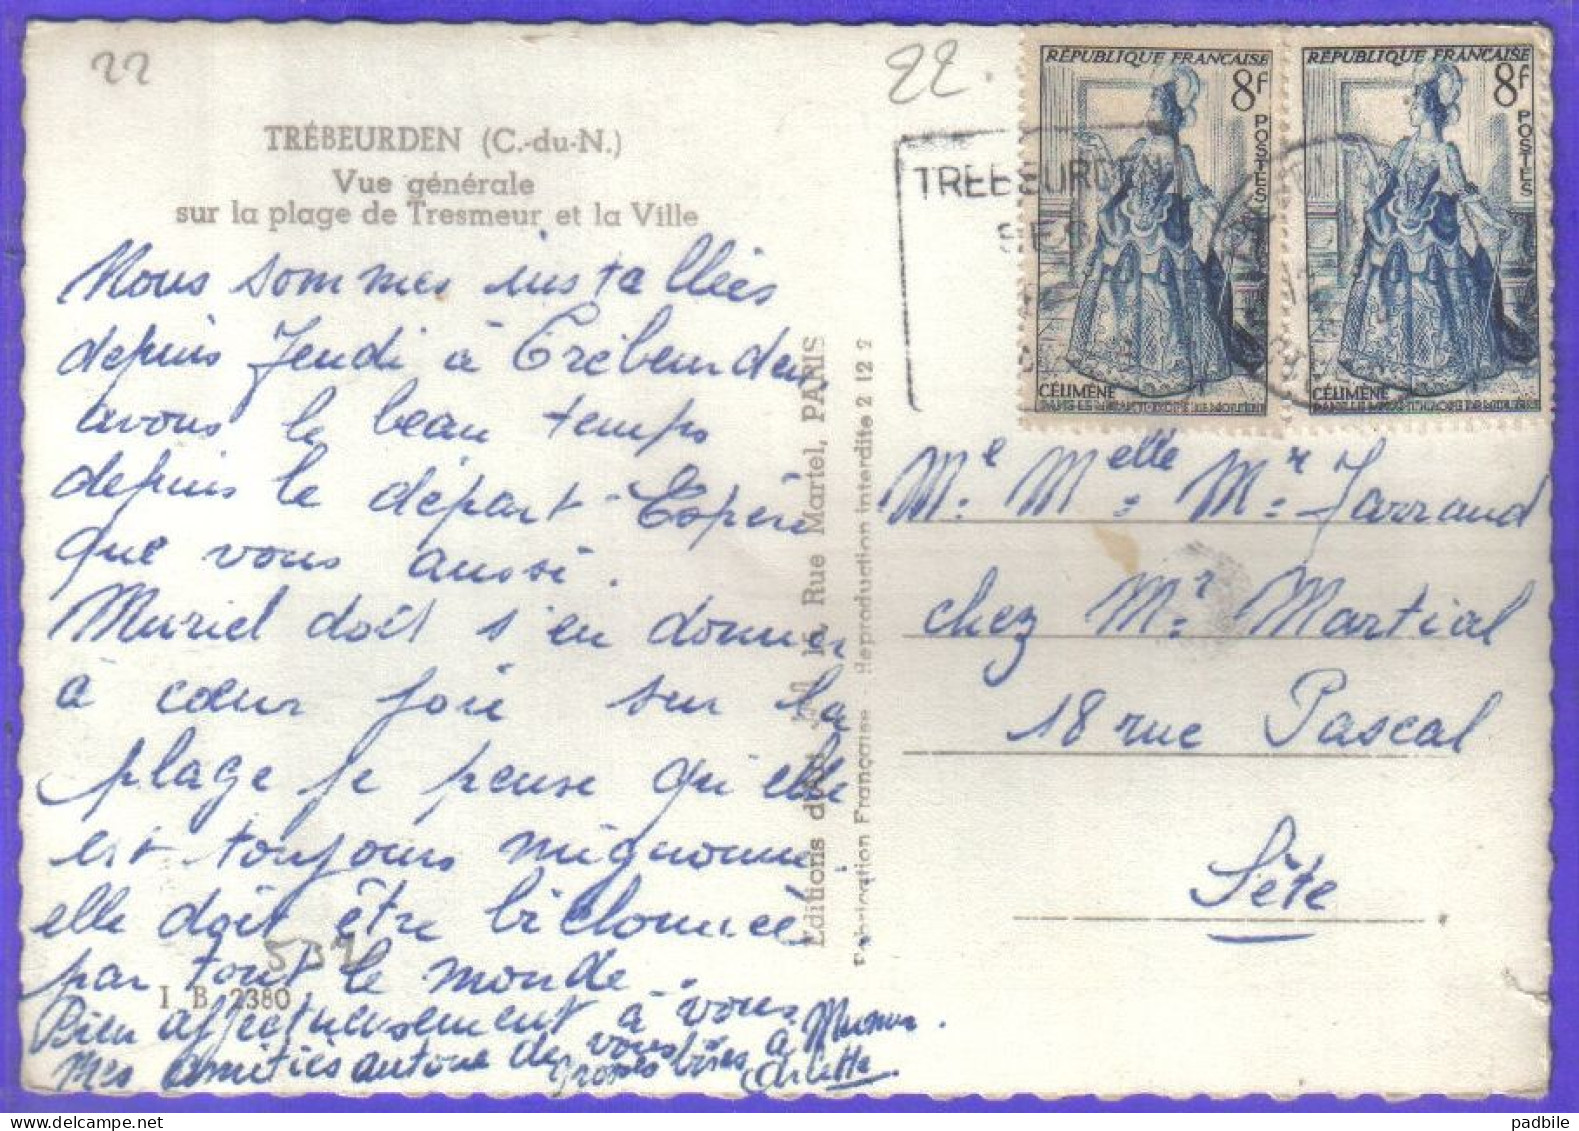 22
22.
TRÉBEURDEN (C.-du-N.)
Vue générale
sur la plage de Tresmeur et la Ville
Nous sommes installées
depuis Jeudi à Trébeurden,
avons le beau temps
depuis le départ - Espère
que vous aussi.
Muriel doit s'en donner
à cœur joie sur la
plage je pense qu'elle
est toujours mignonne
elle doit être bichonnée
par tout le monde.
532
I B 2380
Bien affectueusement à vous
Mes amitiés autour de vous
grosses bises à
Arlette.
Editions d'Art 15, Rue Martel, PARIS
Fabrication Française - Reproduction Interdite 2 12 2
TREBEURDEN
SES
RÉPUBLIQUE FRANÇAISE
8f
POSTES
CÉLIMÈNE
DANS LE MISANTHROPE DE MOLIÈRE
RÉPUBLIQUE FRANÇAISE
8f
POSTES
CÉLIMÈNE
DANS LE MISANTHROPE DE MOLIÈRE
Me. Melle. Mr. Jarraud
chez Mr. Martial
18 rue Pascal
Sète
padbile